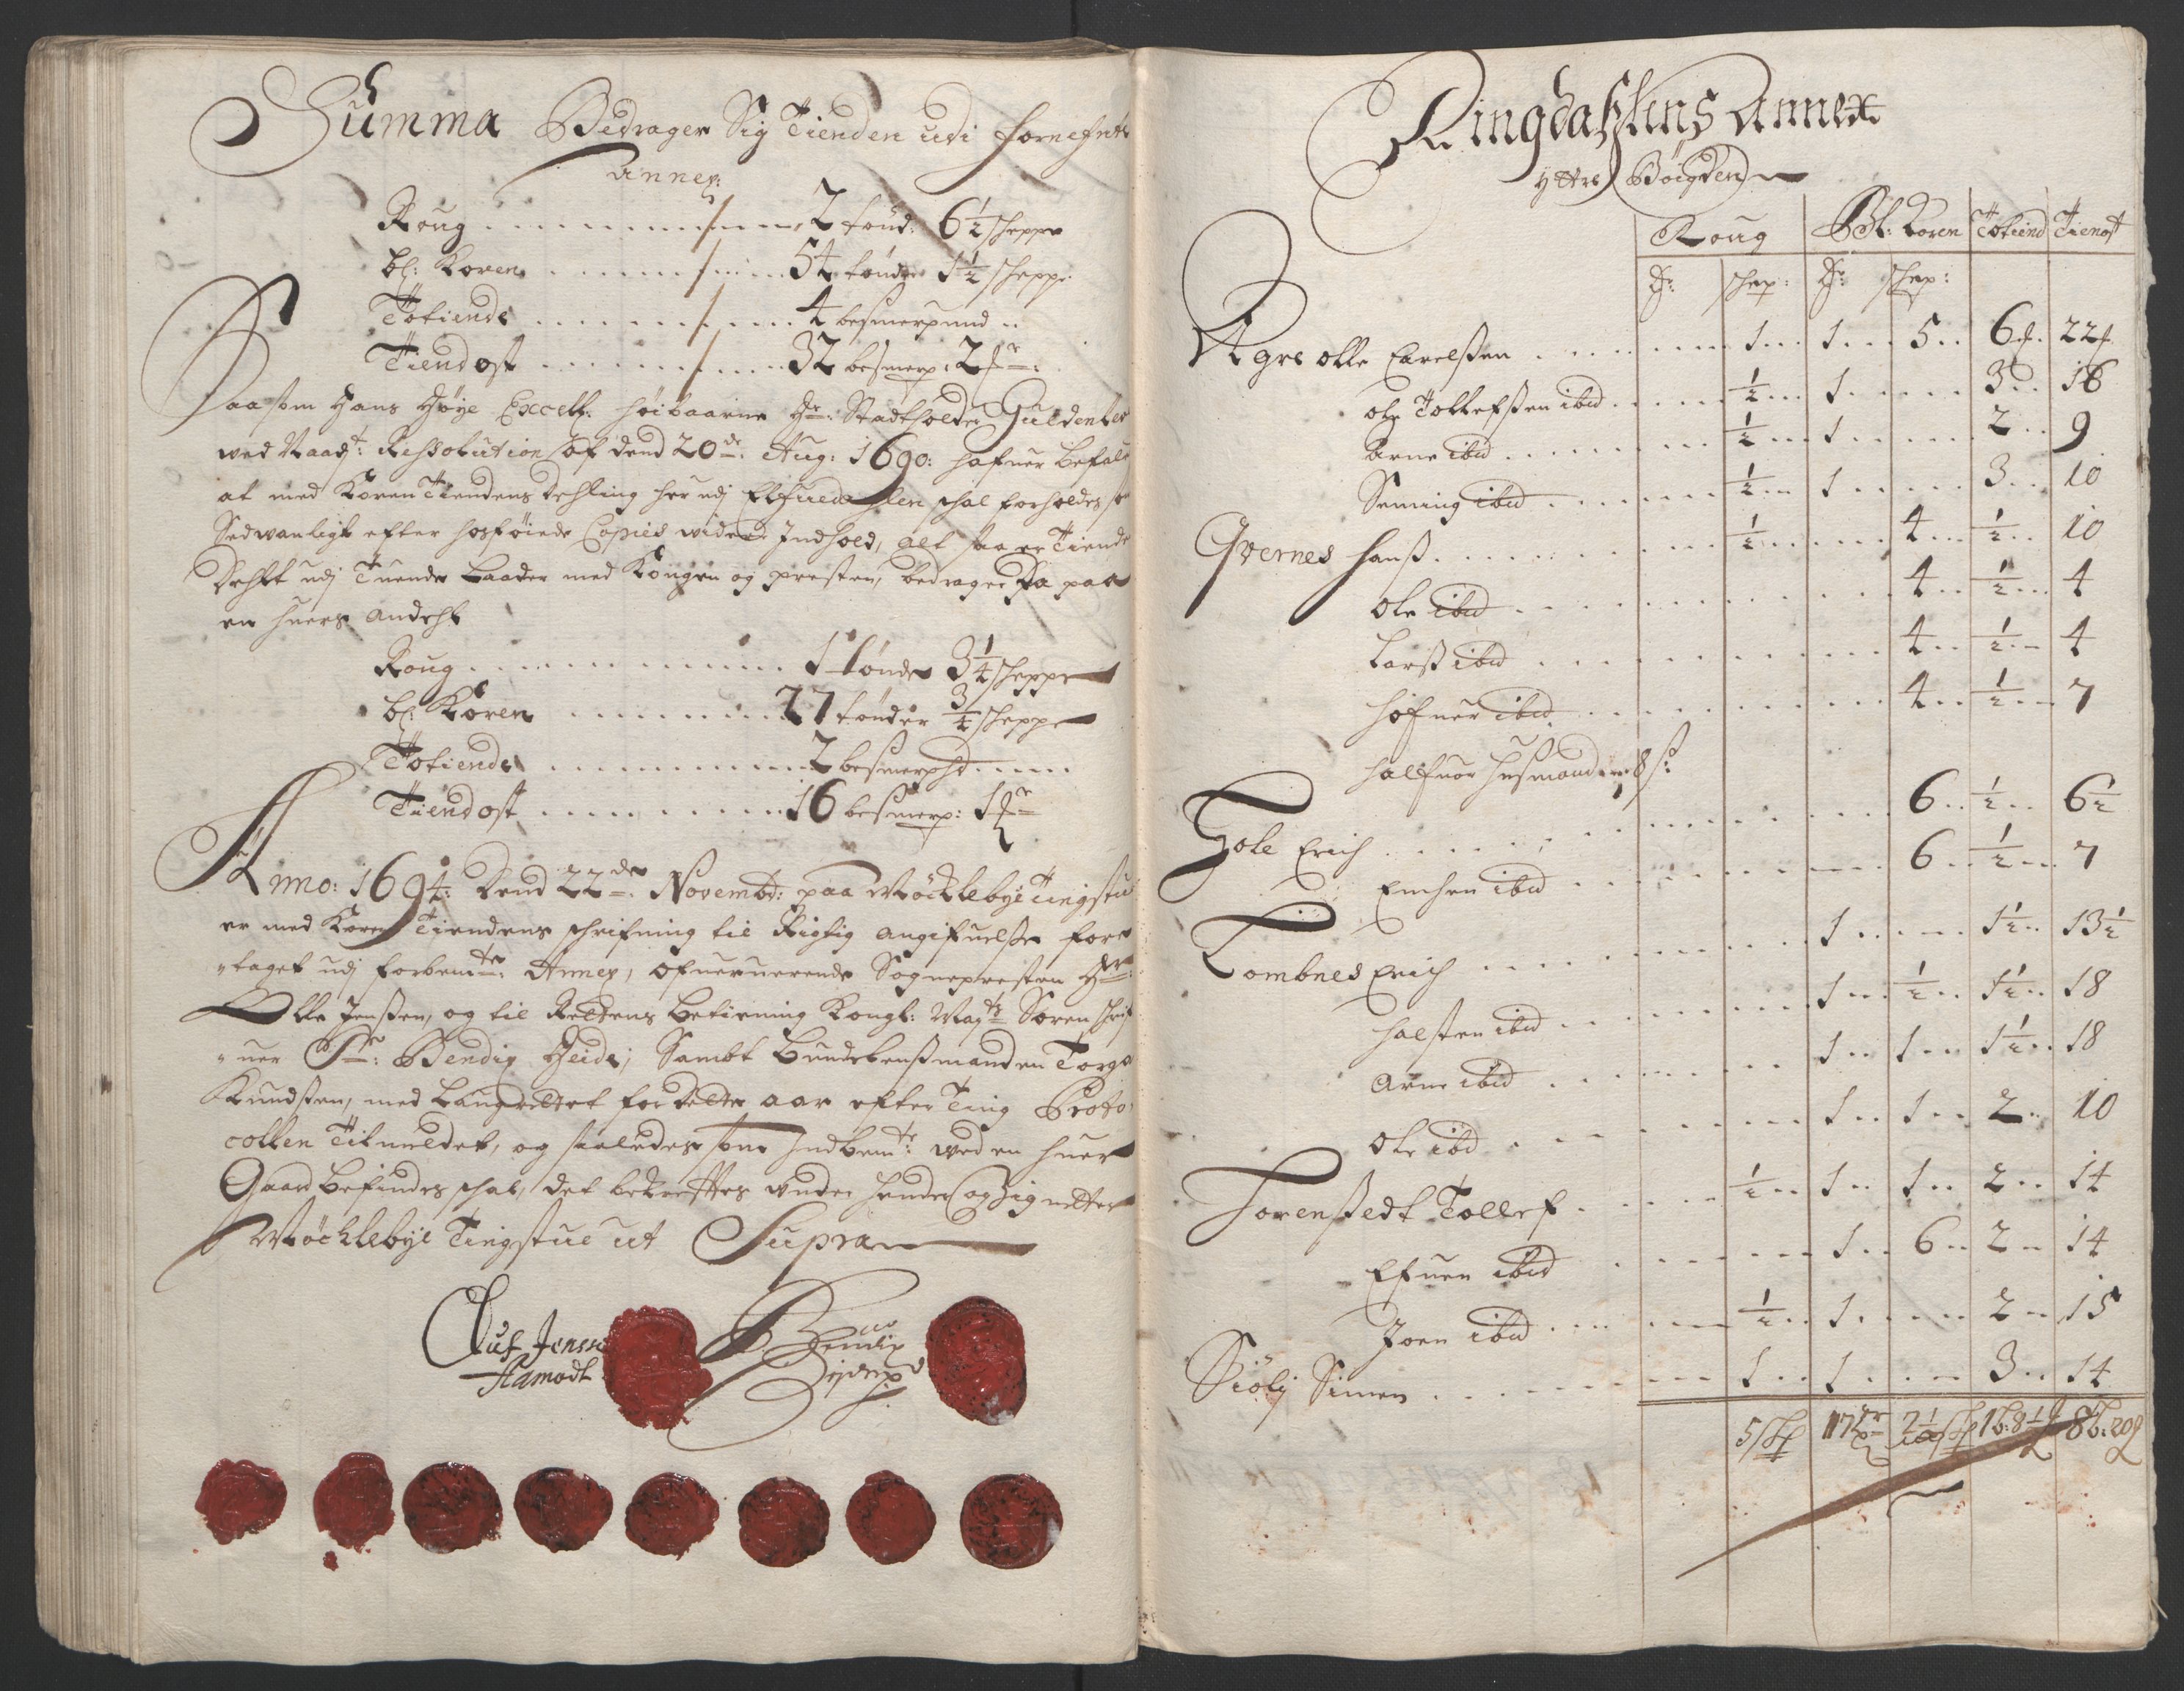 Summa Bedrager Sig Tienden udi fornefnte
Annex:
Roug . . . . . . 2 tønd: 6 1/2 schepper
bl: Koren . . . . . . 54 tønder 1 1/2 scheppe
Totiende . . . . . . 4 besmerpund ..
Tiend ost . . . . . . 32 besmerp: 2 fr:
Saasom Hans Høye Excell: høibaarne Hr: Stadtholder Guldenlev
ved Naadt: Ressolution af dend 20de: Aug: 1690: hafuer Befalet
at med Koren Tiendens dehling her udj Elfuedahlen schal forholdes som
Sedwanligt efter hosføiede Copies widere Indhold, alt saa er Tiende
Dehlt udj Tuende Laader med Kongen og presten, bedrager da paa
en huers andehl
Roug . . . . . . 1 tønde 3 1/4 scheppe
bl: Koren . . . . . . 27 tønder 3/4 scheppe
Totiende . . . . . . 2 besmerphd . . . .
Tiend ost . . . . . . 16 besmerp: 1 fr
Anno: 1694: Dend 22de: Novembr: paa Møchlebye Tingstue
er med Koren Tiendens schrifning til Rigtig angifuelse fore
"taget udj forbemte: Annex, ofueruerende Sognepresten Hr:
Olle Jenssen, og til Rettens betiening Kongl: Mayts Soren schrif
"uer Sr: Bendix Heide, Sambt Bundelensmanden Torger
Knudsen, med Laugrettet for dette aar efter Ting Proto
collen Tilmeldet, og saaledes som Indbemte: ved en huer
Gaard befindes schal, det bekreftes under hender og Zignetter
Møchlebye Tingstue ut Supra
Oluf Jenssen
Aamodt
Bendix
Ringdahlens Annex
yttre Bøigden
Roug Bl: Koren Totiend Tienost
Tr: schep: Tr: schep:
Agre olle Carelssen . . . . 1 . . 1 . . 5 . . 6 f. 22 f
ole Tollefssen ibid . . . . 1/2 . . 1 . . . . 3 . . 16
Arne ibid . . . . 1/2 . . 1 . . . . 2 . . 9
Seming ibid . . . . 1/2 . . 1 . . . . 3 . . 10
Qvernes hans . . . . 1/2 . . . . 4 . . 1/2 . . 10
Ole ibid . . . . 4 . . 1/2 . . 4
Lars ibid . . . . 4 . . 1/2 . . 4
hofuer ibid . . . . 4 . . 1/2 . . 7
halfuor husmand . . 8 s:
Gole Erich . . . . 6 . . 1/2 . . 6 1/2
Emhen ibid . . . . 6 . . 1/2 . . 7
Tombnes Erich . . . . 1 . . . . 1 1/2 . . 13 1/2
halsten ibid . . . . 1 . . 1/2 . . 1 1/2 . . 18
Arne ibid . . . . 1 . . 1 . . 1 1/2 . . 18
Ole ibd . . . . 1 . . 1 . . 2 . . 10
Forenstedt Tollef . . . . 1/2 . . 1 . . 1 . . 2 . . 14
Efuen ibid . . . . 1 . . 6 . . 2 . . 14
Joen ibid . . . . 1/2 . . 1 . . . . 2 . . 15
Siølj Simen . . . . 1 . . 1 . . . . 3 . . 14
5 sch 17 Tr 2 1/2 sch 1 b: 8 1/2 f 8 b: 20 f